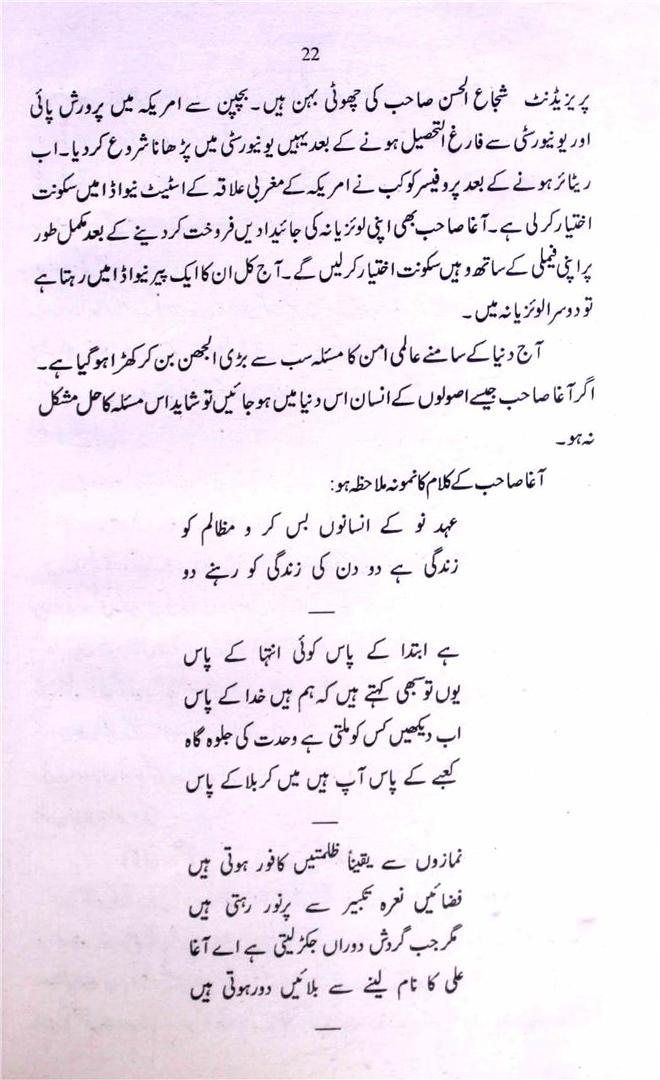 22
پریزیڈنٹ شجاع الحسن صاحب کی چھوٹی بہن ہیں۔ بچپن سے امریکہ میں پرورش پائی
اور یونیورسٹی سے فارغ التحصیل ہونے کے بعد یہیں یونیورسٹی میں پڑھانا شروع کر دیا۔ اب
ریٹائر ہونے کے بعد پروفیسر کوکب نے امریکہ کے مغربی علاقہ کے اسٹیٹ نیواڈا میں سکونت
اختیار کر لی ہے۔ آغا صاحب بھی اپنی لوئزیانہ کی جائیدادیں فروخت کر دینے کے بعد مکمل طور
پر اپنی فیملی کے ساتھ وہیں سکونت اختیار کر لیں گے۔ آج کل ان کا ایک پیر نیواڈا میں رہتا ہے
تو دوسرا لوئزیانہ میں۔
آج دنیا کے سامنے عالمی امن کا مسئلہ سب سے بڑی الجھن بن کر کھڑا ہو گیا ہے۔
اگر آغا صاحب جیسے اصولوں کے انسان اس دنیا میں ہو جائیں تو شاید اس مسئلہ کا حل مشکل
نہ ہو۔
آغا صاحب کے کلام کا نمونہ ملاحظہ ہو:
عہد نو کے انسانوں بس کر و مظالم کو
زندگی ہے دو دن کی زندگی کو رہنے دو
ہے ابتدا کے پاس کوئی انتہا کے پاس
یوں تو سبھی کہتے ہیں کہ ہم ہیں خدا کے پاس
اب دیکھیں کس کو ملتی ہے وحدت کی جلوہ گاہ
کعبے کے پاس آپ ہیں میں کربلا کے پاس
نمازوں سے یقیناً ظلمتیں کافور ہوتی ہیں
فضائیں نعرہ تکبیر سے پرنور رہتی ہیں
مگر جب گردش دوراں جکڑ لیتی ہے اے آغا
علی کا نام لینے سے بلائیں دور ہوتی ہیں